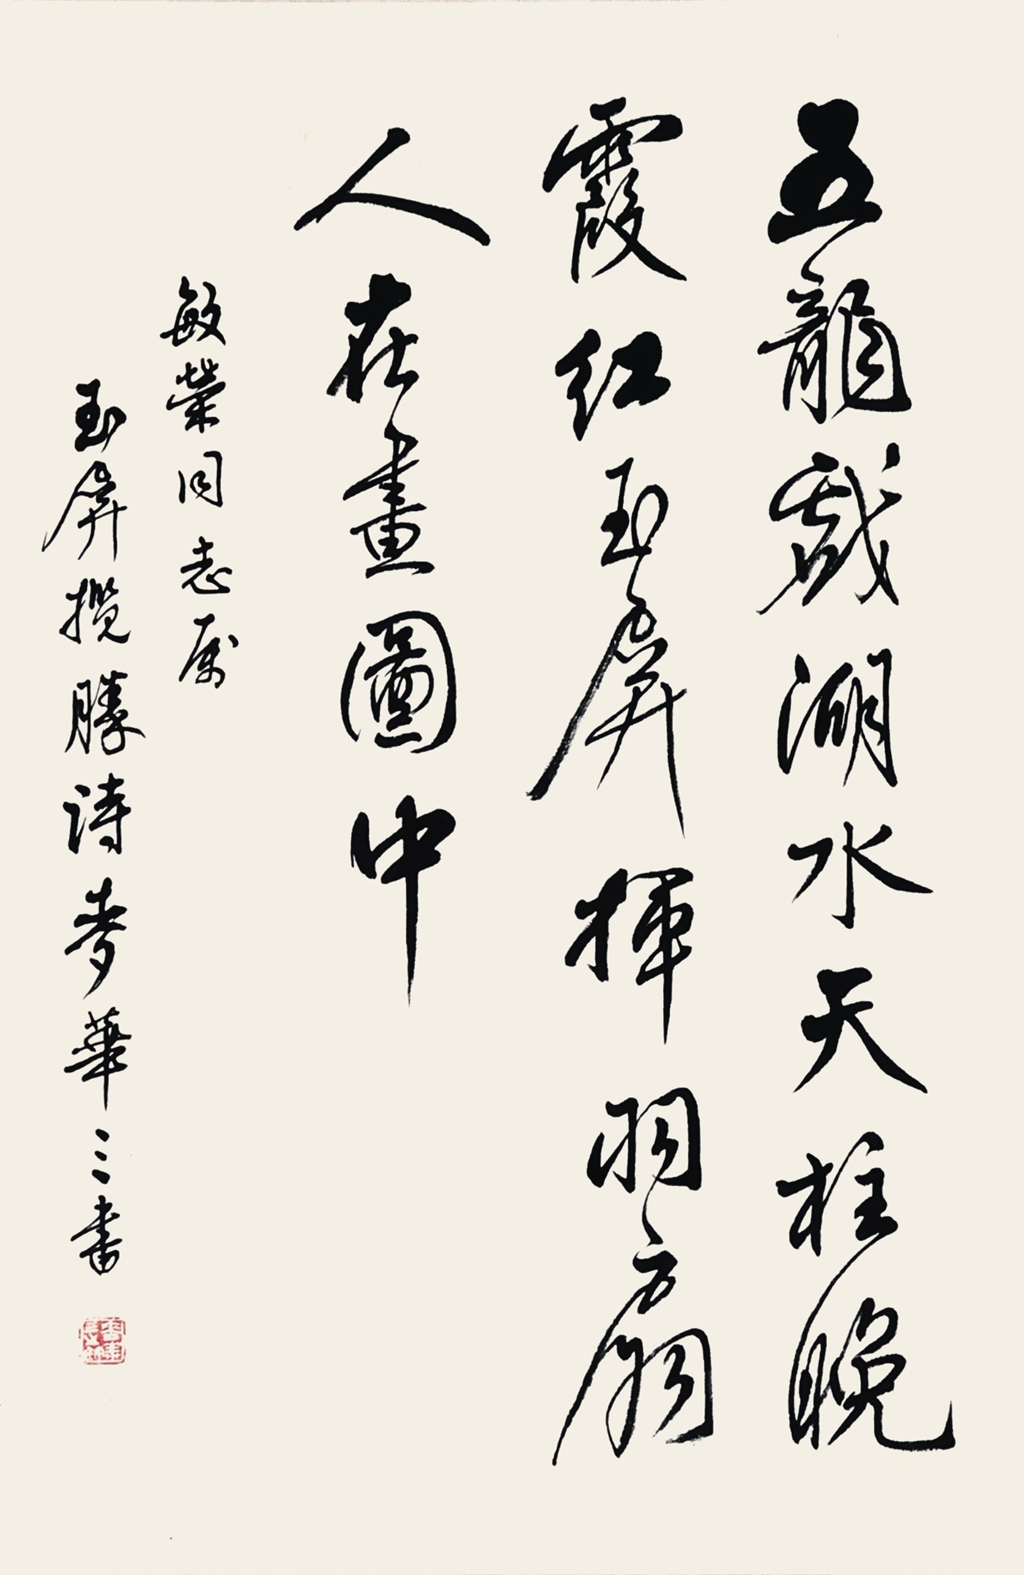 五龍戲湖水天柱晚
霞红玉屏揮羽扇
人在畫圖中
敏榮同志属
玉屏攬勝詩麥華三書